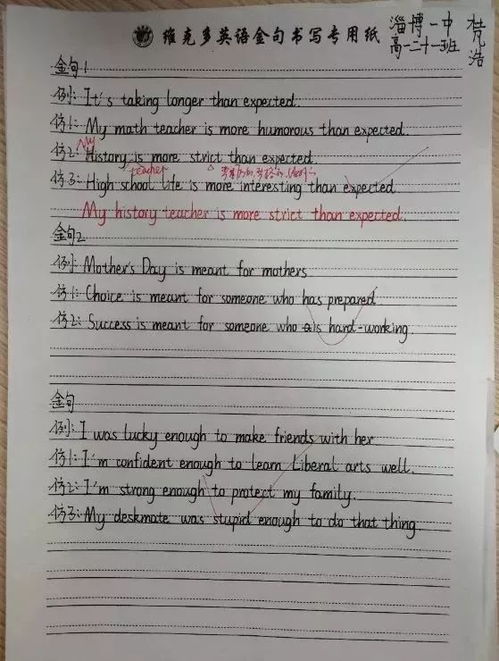 维克多英语金句书写专用纸
淄博一中
高一二十一班
梵浩
金句1
例: It's taking longer than expected.
仿1: My math teacher is more humorous than expected.
My
仿2: History is more strict than expected.
teacher
仿3: High school life is more interesting than expected
My history teacher is more strict than expected.
金句2
例: Mother's Day is meant for mothers
仿1: Choice is meant for someone who has prepared
仿2: Success is meant for someone who is hard-working
金句
例: I was lucky enough to make friends with her
仿1: I'm confident enough to learn Liberal arts well.
仿2: I'm strong enough to protect my family.
仿3: My deskmate was stupid enough to do that thing.